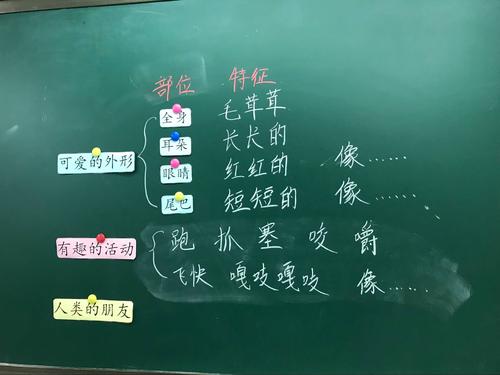 部位 特征
全身 毛茸茸
耳朵 长长的
可爱的外形
眼睛 红红的 像……
尾巴 短短的 像……
有趣的活动
跑 抓 塞 咬 嚼
飞快 嘎吱嘎吱 像……
人类的朋友